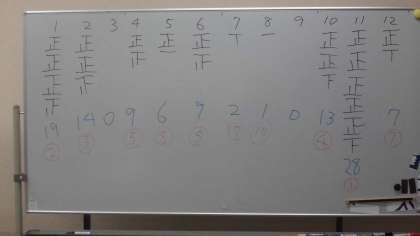 1 2 3 4 5 6 7 8 9 10 11 12
正 正 正 正 正 丅 一 正 正 正
正 正 一 正 正 丅
正 下 正
正
正
下
19 14 0 9 6 9 2 1 0 13 28 7
② ③ ⑤ ⑤ ⑩ ④ ① ⑦